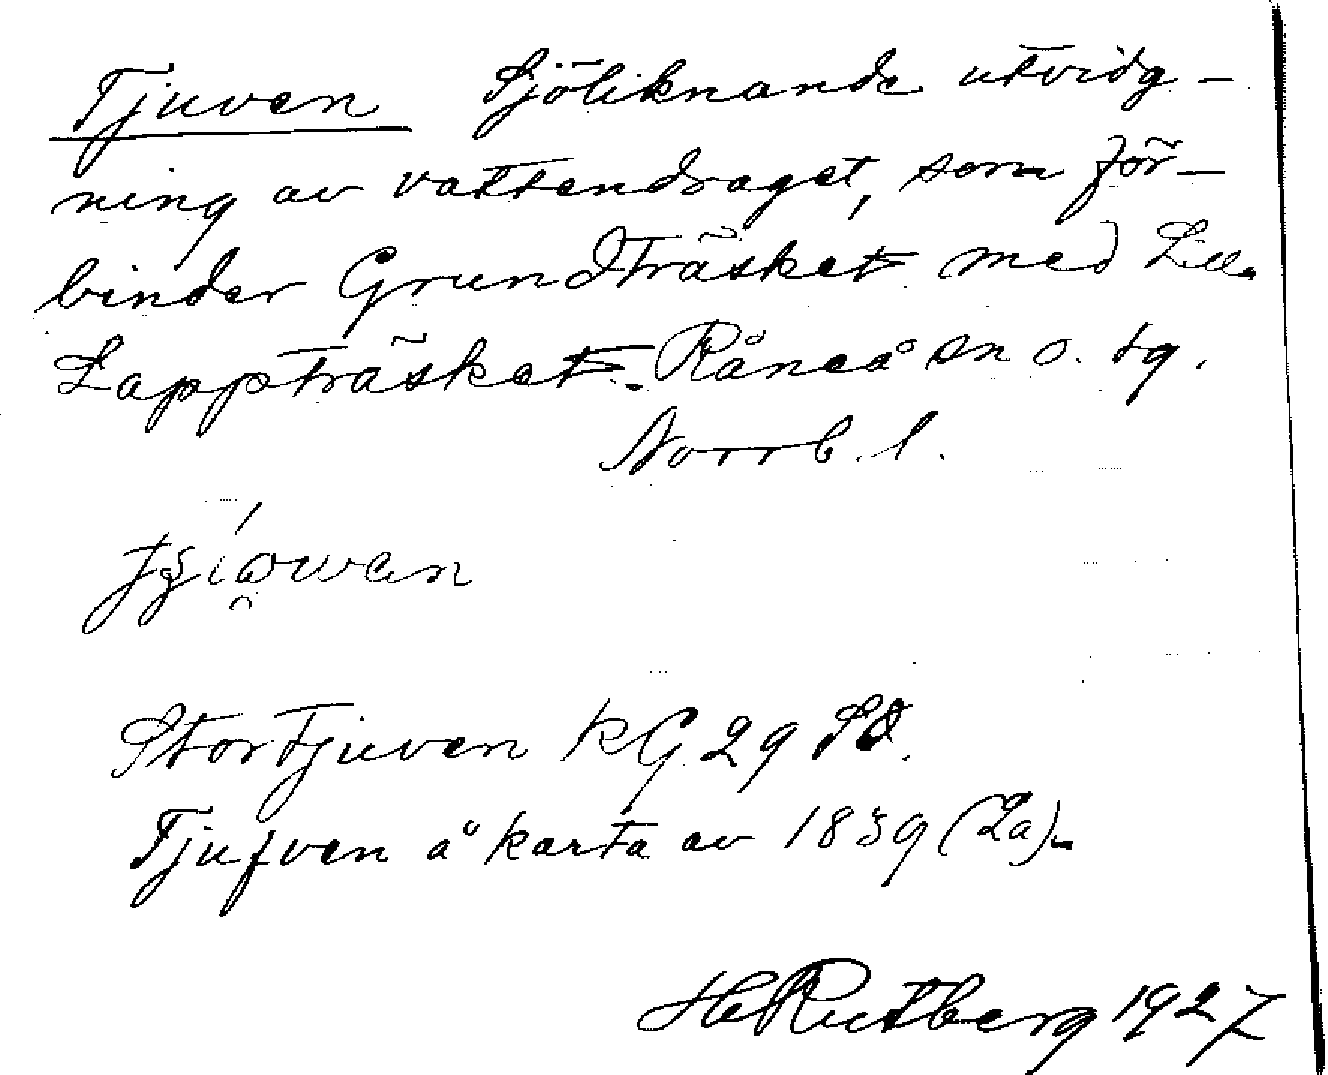 Tjuven Sjöliknande utvidg-
ning av vattendraget, som för-
binder Grundträsket med L:a
Lappträsket. Råneå sn o. tg.
Norrb. l.
Stortjuven KG 29 SO.
Tjufven å karta av 1839 (La).
H Rutberg 1927